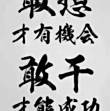 敢想
才有機會
敢干
才能成功